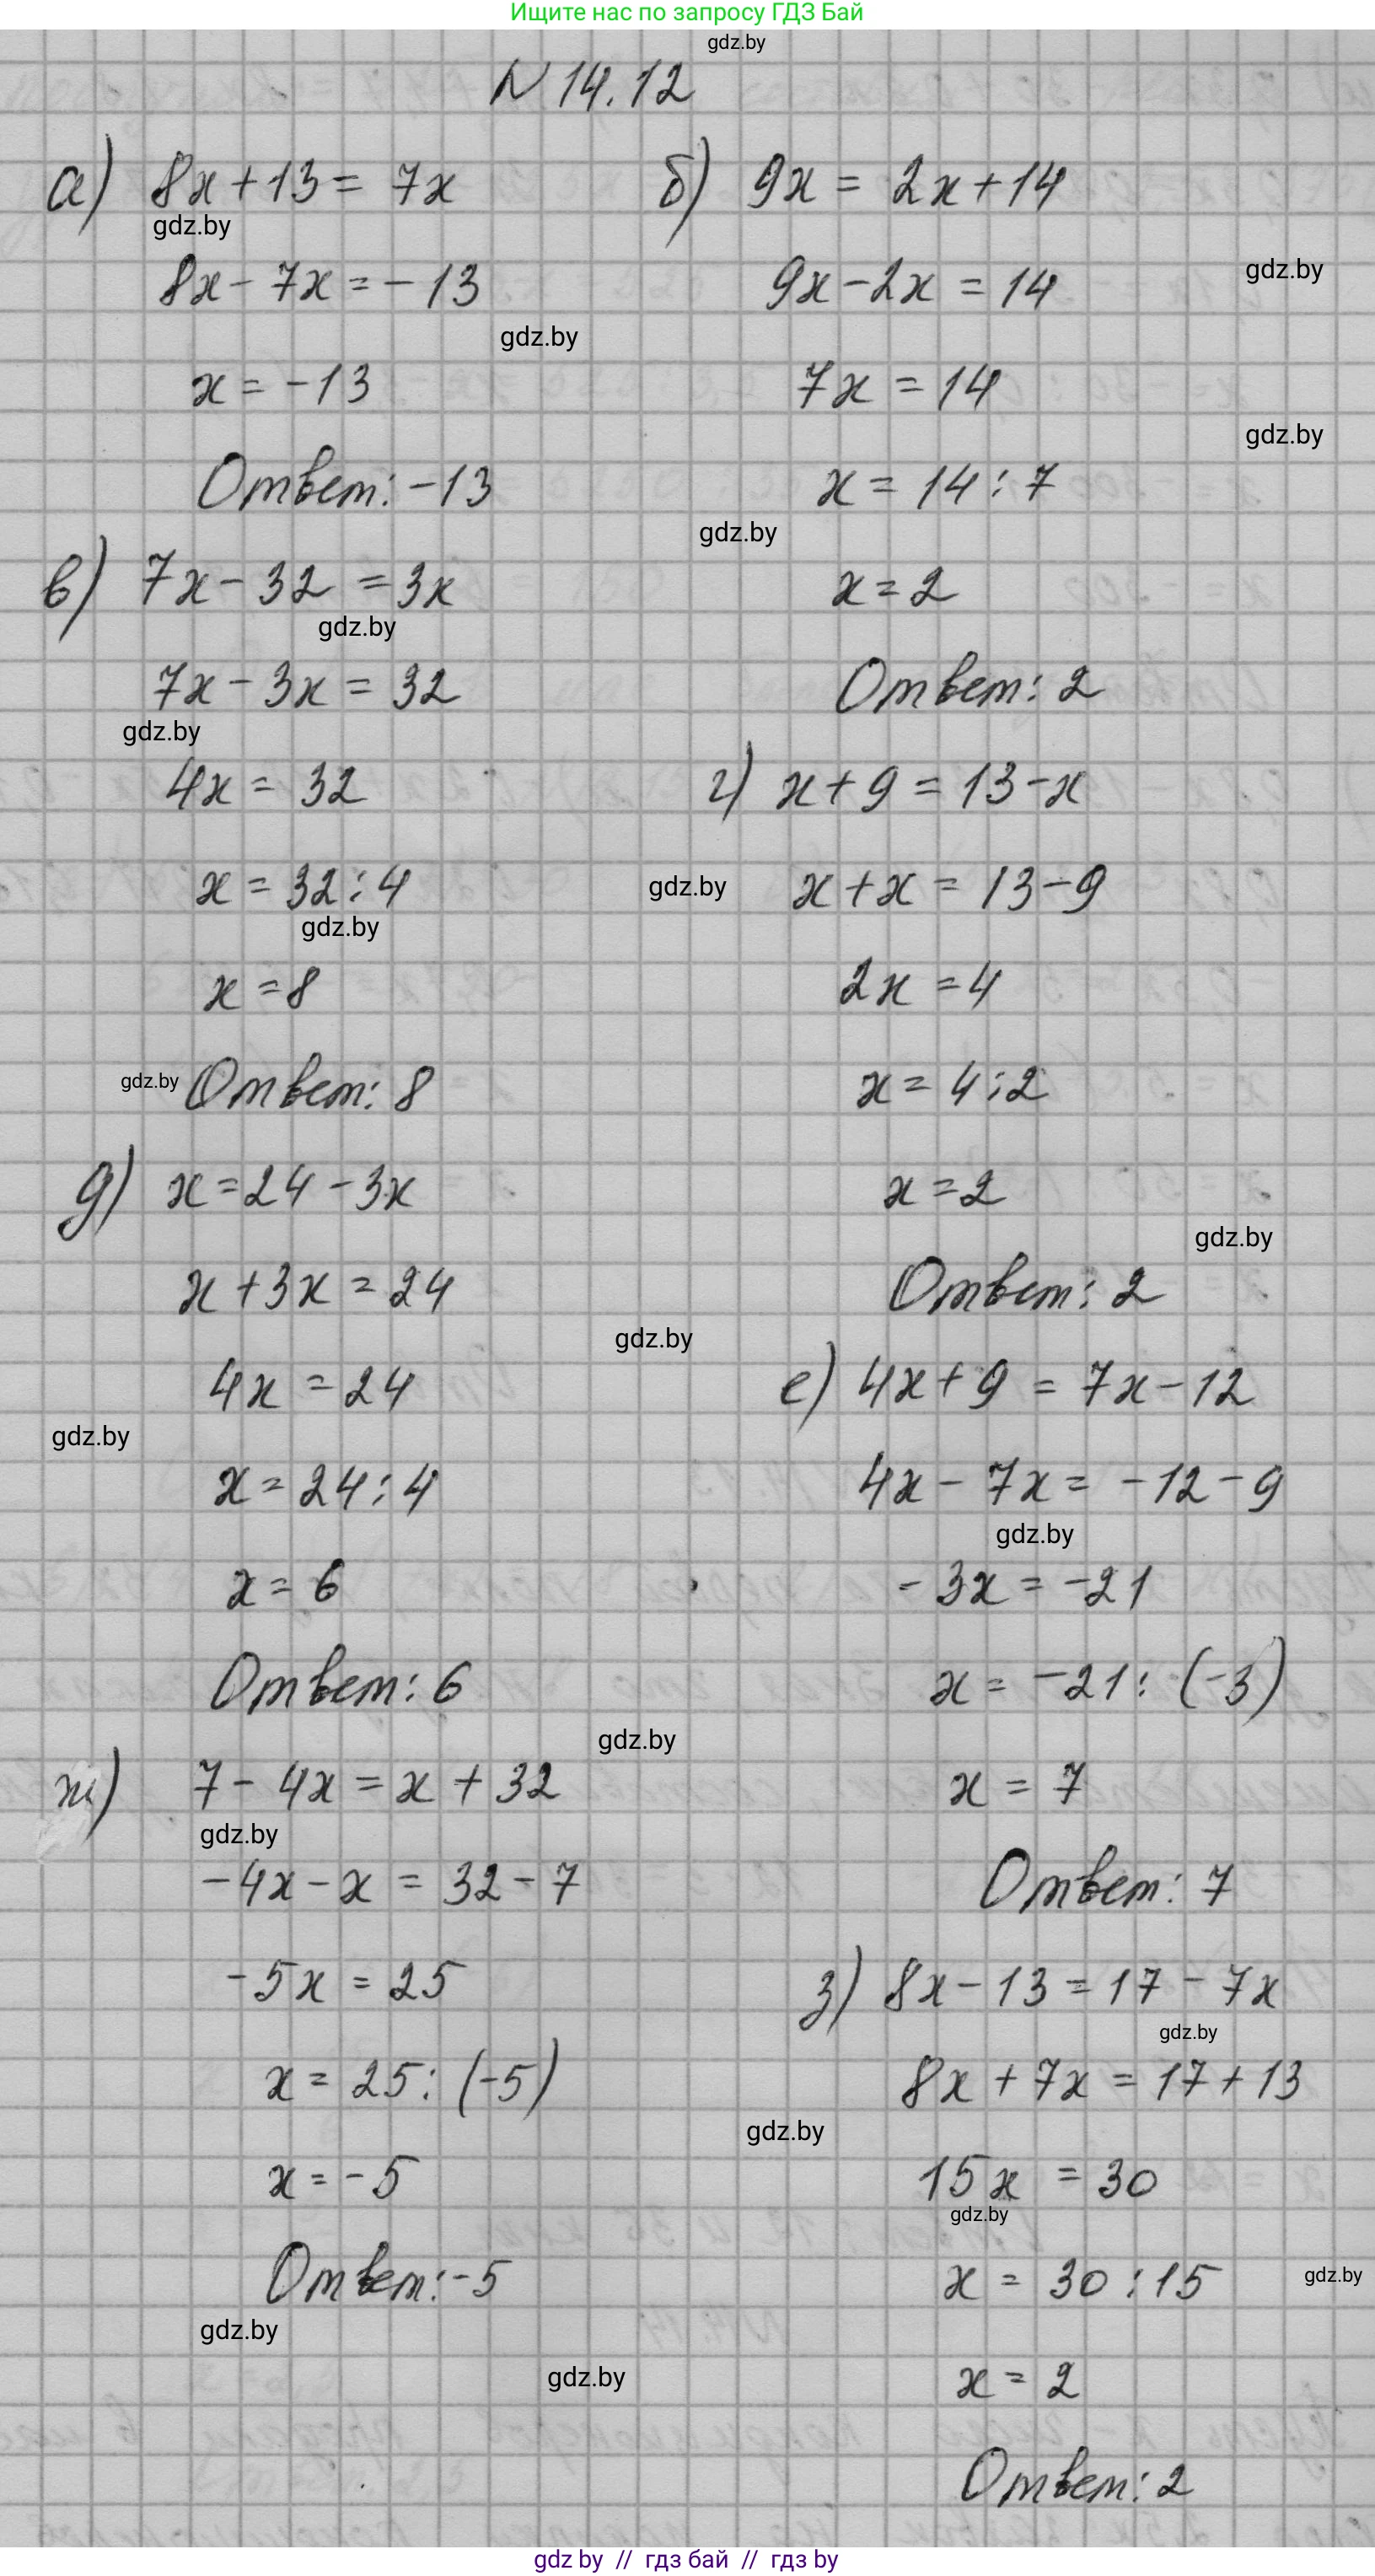 Ищите нас по запросу ГДЗ Бай
gdz.by
N 14.12
а) 8x + 13 = 7x
gdz.by
8x - 7x = - 13
gdz.by
x = - 13
Ответ: -13
б) 9x = 2x + 14
gdz.by
9x - 2x = 14
7x = 14
gdz.by
x = 14 : 7
gdz.by
x = 2
Ответ: 2
в) 7x - 32 = 3x
gdz.by
7x - 3x = 32
gdz.by
4x = 32
x = 32 : 4
gdz.by
x = 8
gdz.by
Ответ: 8
г) x + 9 = 13 - x
gdz.by
x + x = 13 - 9
2x = 4
x = 4 : 2
x = 2
gdz.by
Ответ: 2
д) x = 24 - 3x
x + 3x = 24
gdz.by
4x = 24
gdz.by
x = 24 : 4
x = 6
Ответ: 6
gdz.by
е) 4x + 9 = 7x - 12
4x - 7x = - 12 - 9
gdz.by
- 3x = - 21
x = - 21 : (-3)
x = 7
Ответ: 7
ж) 7 - 4x = x + 32
gdz.by
- 4x - x = 32 - 7
- 5x = 25
x = 25 : (-5)
x = - 5
Ответ: - 5
gdz.by
gdz.by
з) 8x - 13 = 17 - 7x
gdz.by
8x + 7x = 17 + 13
gdz.by
15x = 30
gdz.by
x = 30 : 15
gdz.by
x = 2
Ответ: 2
gdz by // гдз бай // гдз by